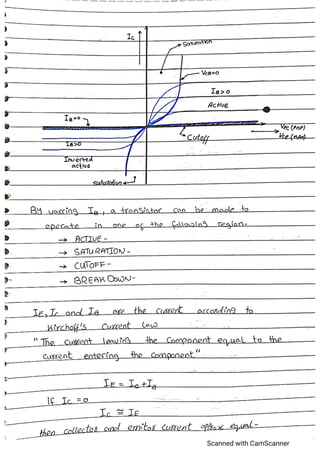 Ic
Saturation
VCB=0
IB>0
Active
IB=0
VEC (PNP)
VCE (NPN)
Cutoff
IB>0
Inverted
active
Saturation
By varring IB, a transistor can be made to
operate in one of the following region.
→ ACTIVE-
→ SATURATION-
→ CUTOFF-
→ BREAK DOWN-
IE, Ic and IB are the current according to
Kirchoff's Current law
"The current leaving the component equal to the
current entering the component."
IE = Ic + IB
If Ic = 0
Ic ≅ IE
then collector and emitor current equal-
Scanned with CamScanner